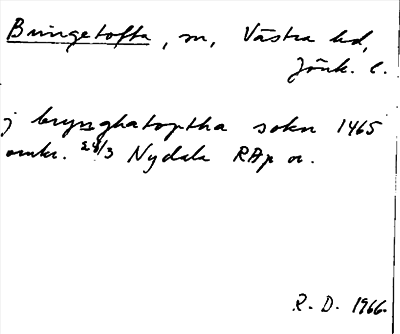 Bringetofta, sn, Västra hd,
Jönk. l.
j brynghatoptha sokn 1465
omkr. 24/3 Nydala RAp or.
R. D. 1966.